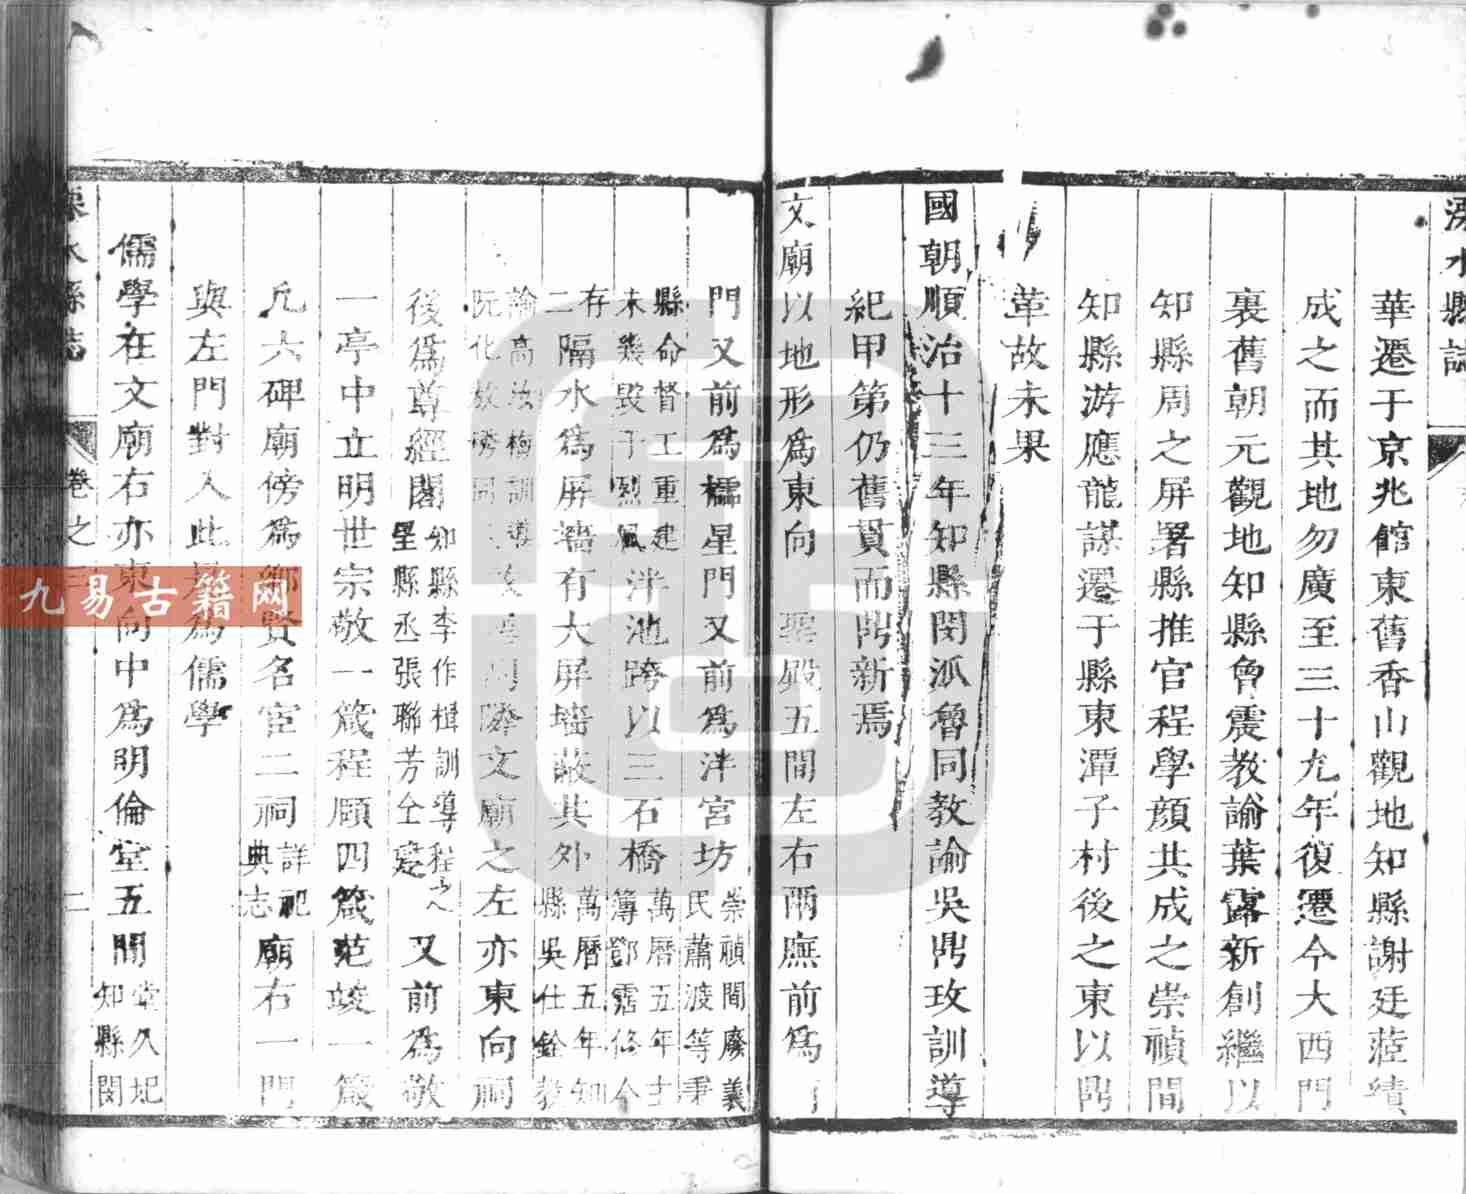 溧水縣誌
華遷于京兆館東舊香山觀地知縣謝廷蒞績
成之而其地勿廣至三十九年復遷今大西門
裏舊朝元觀地知縣魯震教諭葉露新創繼以
知縣周之屏署縣推官程學顏共成之崇禎間
知縣游應龍謀遷于縣東潭子村後之東以鼎
革故未果
國朝順治十三年知縣閔派魯同教諭吳鼎玫訓導
紀甲第仍舊貫而鼎新焉
文廟以地形為東向 聖殿五間左右兩廡前為
門又前為櫺星門又前為泮宮坊
崇禎間廢義
民蕭渡等秉
縣命督工重建
未幾毀于烈風
泮池跨以三石橋
萬曆五年主
簿鄧霑修今
存
二隔水為屏墻有大屏墻蔽其外
萬曆五年知
縣吳仕銓教
諭高 梅訓導
阮化
文廟之左亦東向祠
後為尊經閣
知縣李作楫訓導程
縣丞張聯芳仝建
又前為敬
一亭中立明世宗敬一箴程頤四箴范竣一箴
凡六碑廟傍為鄉賢名宦二祠
詳祀
典志
廟右一門
與左門對入此是為儒學
儒學在文廟右亦東向中為明倫堂五間
堂久圮
知縣閔
溧水縣誌
卷之
九易古籍网